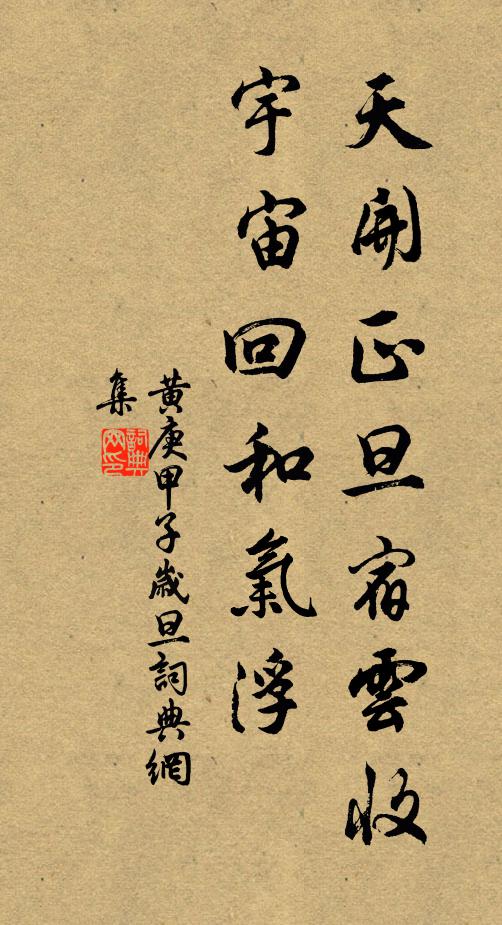 天開正旦宿雲收
宇宙回和氣浮
黄庚甲子歲旦詞典網
集
詞典網印